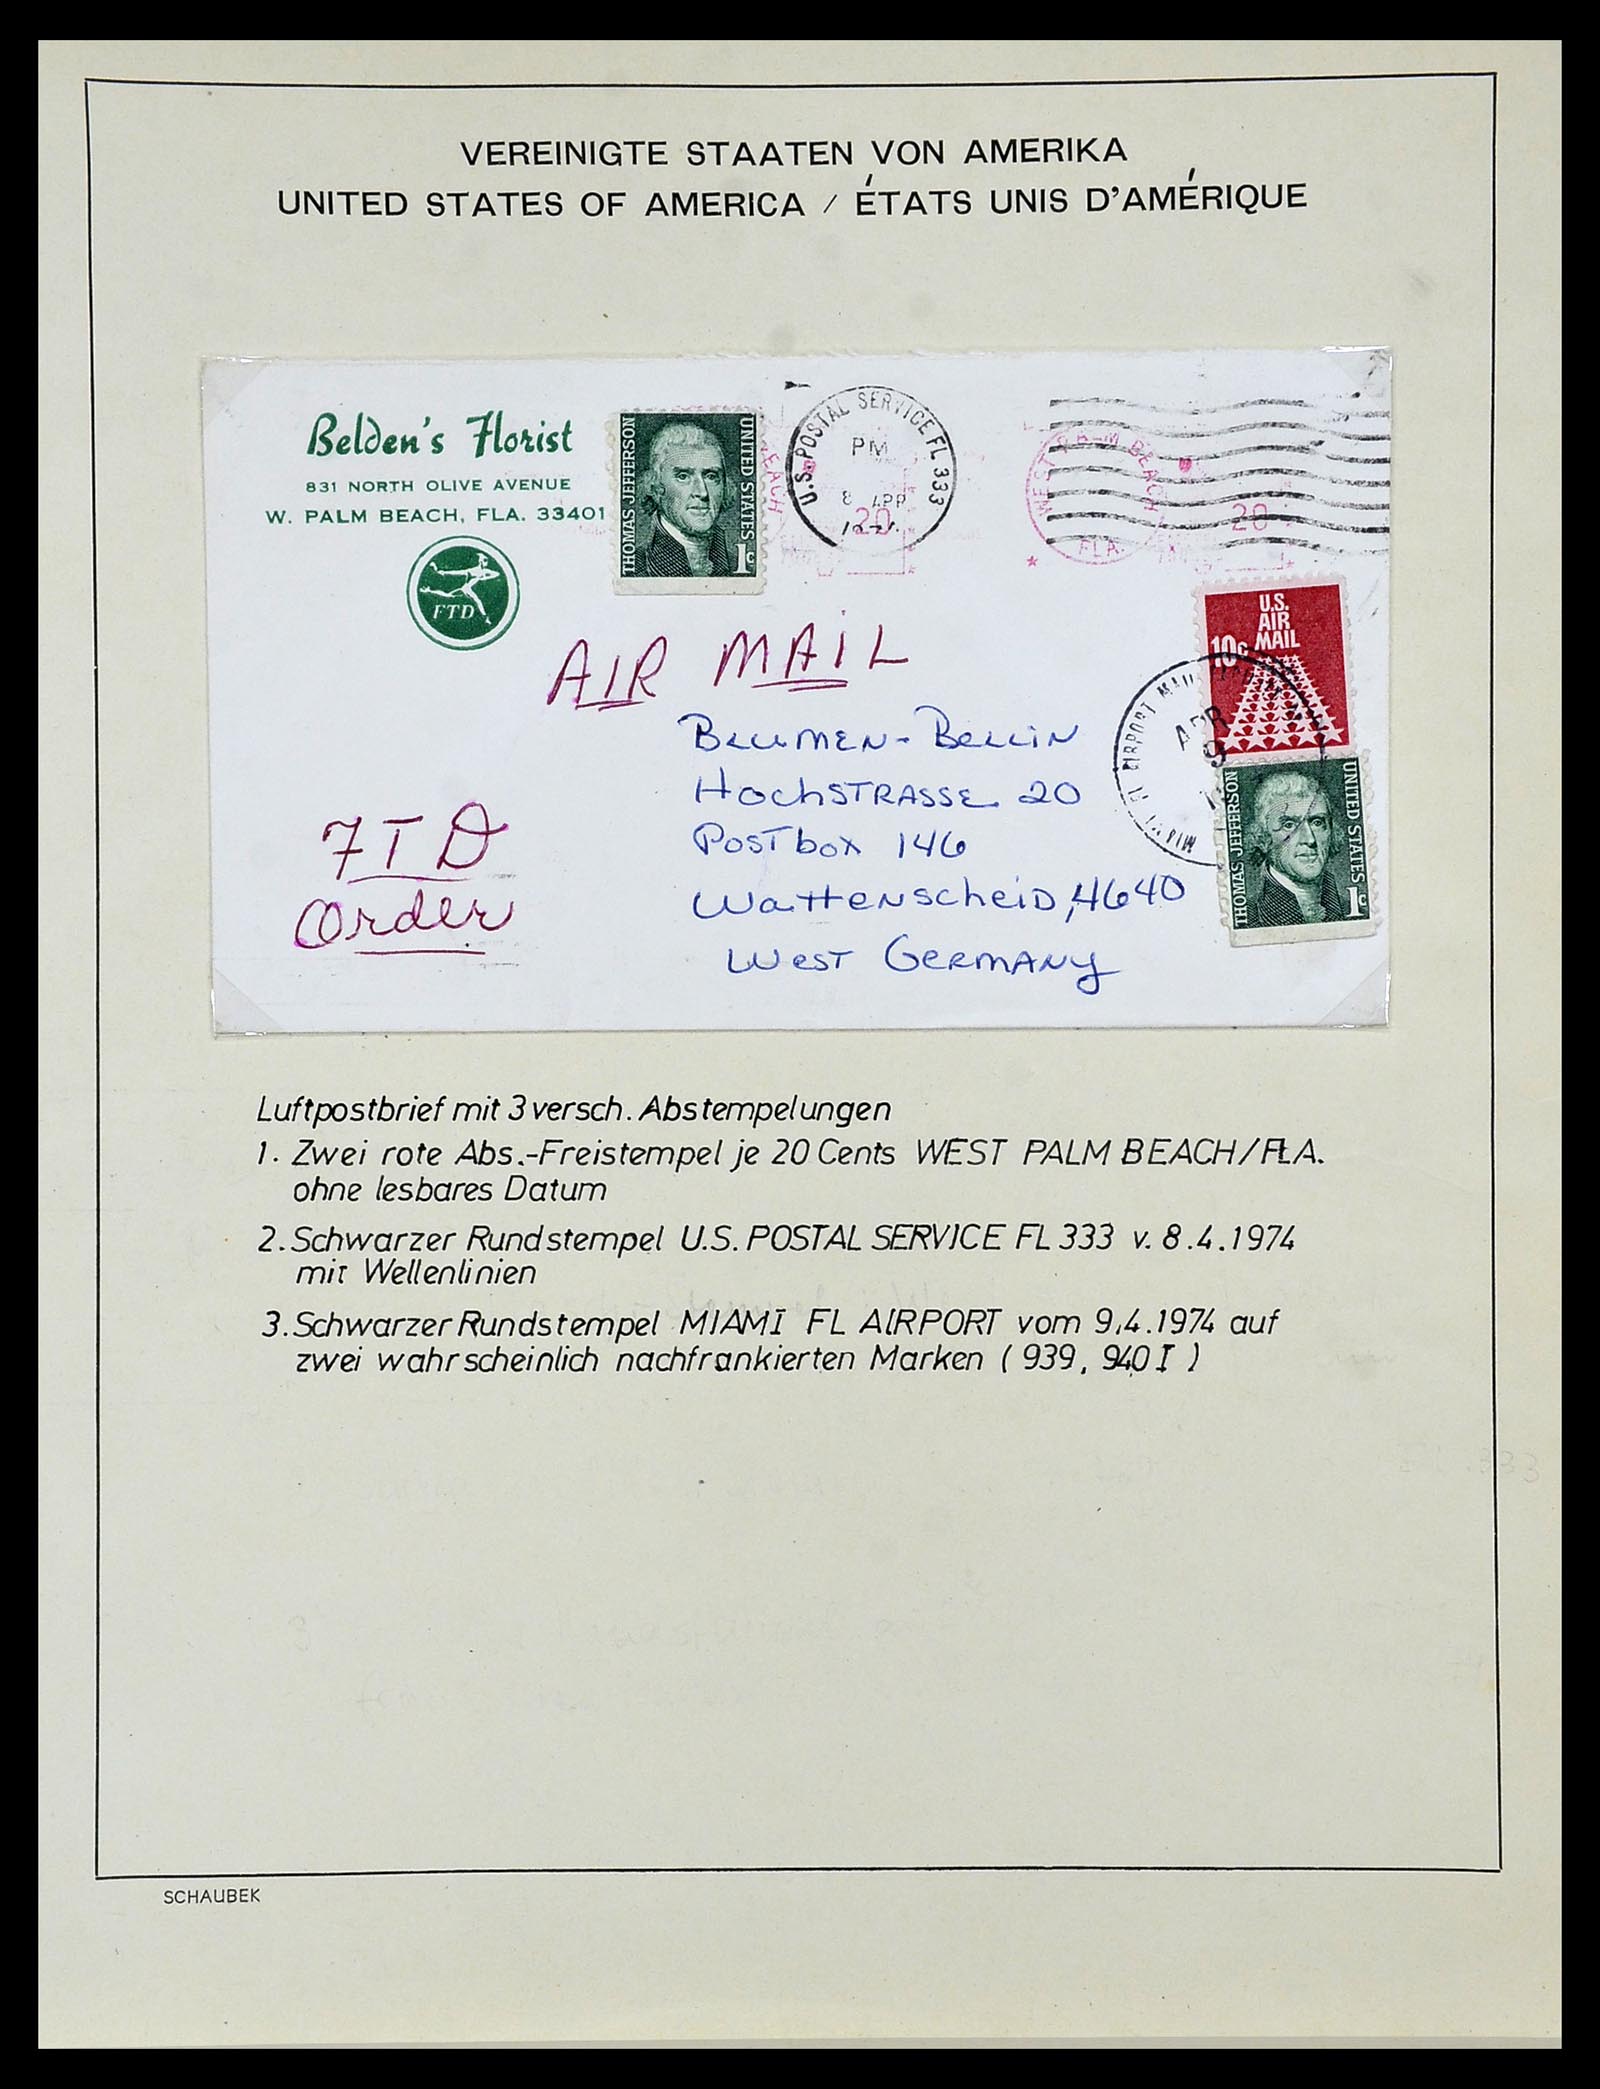 VEREINIGTE STAATEN VON AMERIKA
UNITED STATES OF AMERICA / ÉTATS UNIS D'AMÉRIQUE
Belden's Florist
831 NORTH OLIVE AVENUE
W. PALM BEACH, FLA. 33401
FTD
THOMAS JEFFERSON
UNITED STATES
1c
EACH
U.S. POSTAL SERVICE FL 333
PM
8
20
WEST PALM BEACH
FLA.
20
U.S.
AIR
MAIL
10c
AIRPORT
APR
9
THOMAS JEFFERSON
UNITED STATES
1c
AIR MAIL
BLUMEN-BELLIN
HOCHSTRASSE 20
POSTbox 146
WATTENSCHEID, 4640
WEST GERMANY
FTD
Order
Luftpostbrief mit 3 versch. Abstempelungen
1. Zwei rote Abs.-Freistempel je 20 Cents WEST PALM BEACH/FLA.
ohne lesbares Datum
2. Schwarzer Rundstempel U.S. POSTAL SERVICE FL 333 v. 8.4.1974
mit Wellenlinien
3. Schwarzer Rundstempel MIAMI FL AIRPORT vom 9.4.1974 auf
zwei wahrscheinlich nachfrankierten Marken (939, 940 I)
SCHAUBEK